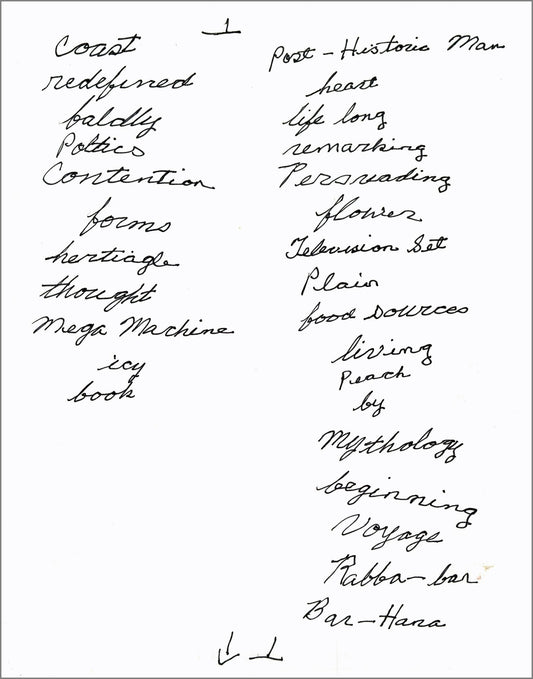 1
Coast
redefined
baldly
Poltics
Contention
forms
hertiagle
thought
Mega Machine
icy
book
Post - Historic Man
heart
life long
remarking
Persuading
flower
Television Set
Plain
food sources
living
Peach
by
Mythology
beginning
Voyage
Rabba - bar
Bar - Hana
↓ 1